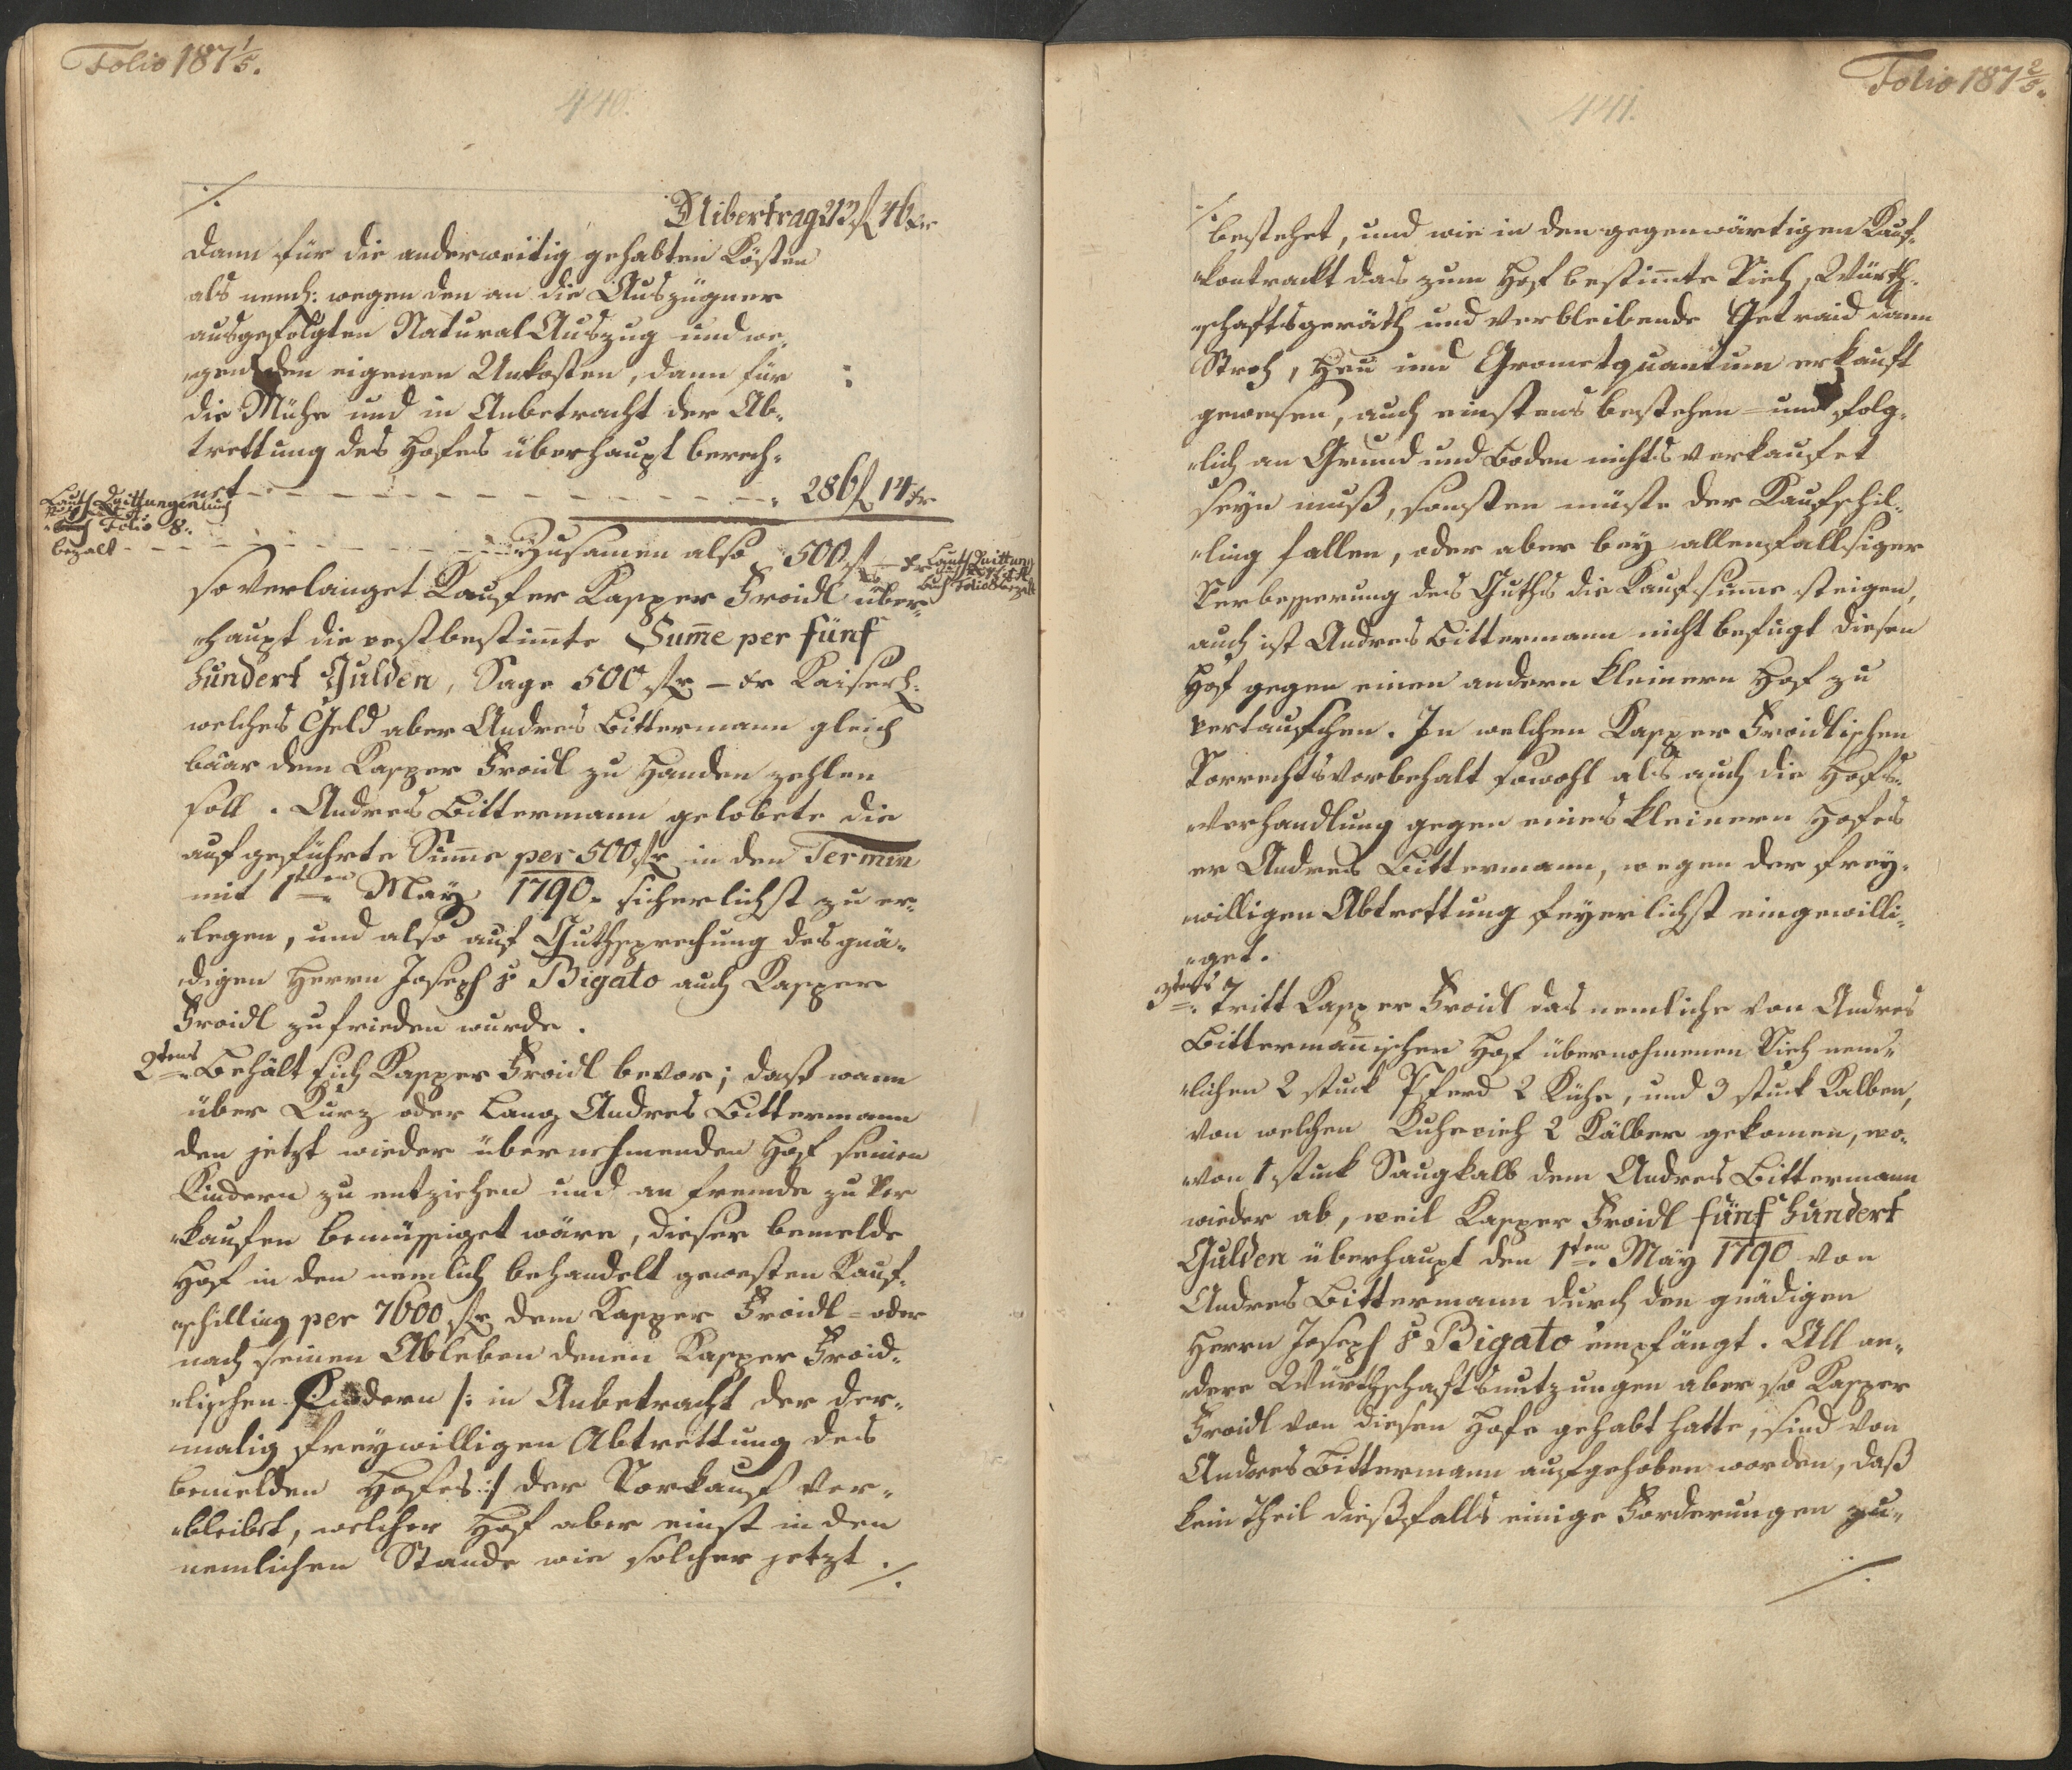 Folio 187 1/5.
440.
./.
Uibertrag 213 f 46 xr
dann für die anderweitig gehabten Kösten
als neml: wegen den an die Auszügner
ausgefolgten Natural Auszug und we„
„gen den eigenen Unkosten, dann für
die Mühe und in Anbetracht der Ab„
trettung des Hofes überhaupt berech„
net - - - - - - - - - - 286 f 14 xr
Laut Quittungen
buch Folio 8.
bezalt - - - -
Zusamen also 500 f — xr
Laut Quittung
buch Folio 8 bezalt
so verlanget Kaufer Kasper Froidl über„
„haupt die vestbestim̅te Sum̅e per fünf
hundert Gulden, Sage 500 f — xr Kaiserl:
welches Geld aber Andres Bittermann gleich
baar dem Kasper Froidl zu Handen zehlen
soll. Andres Bittermann gelobete die
aufgeführte Sum̅e per 500 f in den Termin
mit 1ten May 1790. sicherlichst zu er„
„legen, und also auf Guthsprechung des gnä„
„digen Herrn Joseph v Bigato auch Kasper
Froidl zufrieden wurde.
2tens Behält sich Kasper Froidl bevor; daß wann
über Kurz oder Lang Andres Bittermann
den jetzt wieder übernehmenden Hof seinen
Kindern zu entziehen und an fremde zu ver
„kaufen bemüssiget wäre, dieser bemelde
Hof in den nemlich behandelt gewesten Kauf„
„schilling per 7600 f dem Kasper Froidl = oder
nach seinen Ableben denen Kasper Froid„
„lischen Kindern /: in Anbetracht der der„
malig freywilligen Abtrettung des
bemelden Hofes :/ der Vorkauf ver„
„bleibet, welcher Hof aber einst in den
nemlichen Stande wie solcher jetzt
./.
Folio 187 2/5.
441.
./.
bestehet, und wie in den gegenwärtigen Kauf„
„kontrackt das zum Hof bestim̅te Vieh, Würth„
„schaftsgeräth und verbleibende Getraid dann
Stroh, Heu und Grometquantum erkauft
gewesen, auch einstens bestehen = und folg„
„lich an Grund und Boden nichts verkaufet
seyn muß, sonsten müste der Kaufschil„
„ling fallen, oder aber bey allenfallsiger
Verbesserung des Guths die Kaufsum̅e steigen,
auch ist Andres Bittermann nicht befugt diesen
Hof gegen einen andern kleinern Hof zu
vertauschen. In welchen Kasper Froidlischen
Vorrechtsvorbehalt sowohl als auch die Hofs„
„verhandlung gegen eines kleinern Hofes
er Andres Bittermann, wegen der frey„
„willigen Abtrettung feyerlichst eingewilli„
„get.
3tens Tritt Kasper Froidl das nemliche von Andres
Bitterman̅ischen Hof übernohmenen Vieh nem„
„lichen 2 stuck Pferd 2 Kühe, und 3 stuck Kalben,
von welchen Kuhevieh 2 Kälber gekomen, wo„
„von 1 stuck Saugkalb dem Andres Bittermann
wieder ab, weil Kasper Froidl fünf hundert
Gulden überhaupt den 1ten May 1790 von
Andres Bittermann durch den gnädigen
Herrn Joseph v Bigato empfängt. All an„
„dere Würthschaftsnutzungen aber so Kasper
Froidl von diesen Hofe gehabt hatte, sind von
Andres Bittermann aufgehoben worden, daß
kein Theil dießfalls einige Forderungen zu„
./.